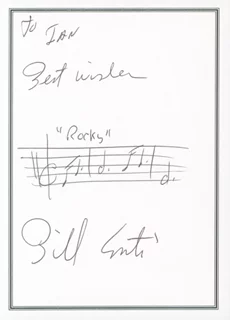 To IAN
Best wishes
"Rocky"
Bill Conti